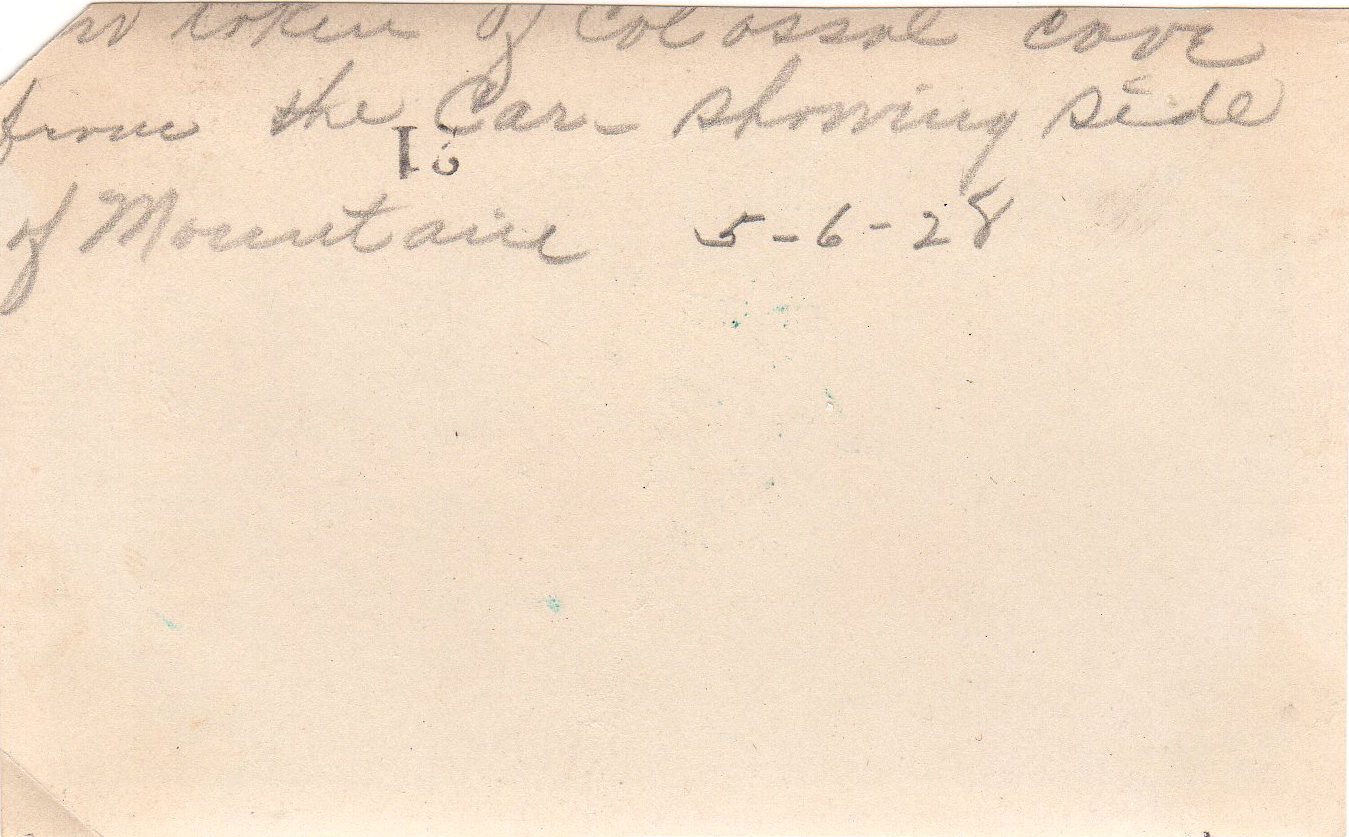 taken of Colossal cave
from the Car - showing side
of Mountain 5-6-28